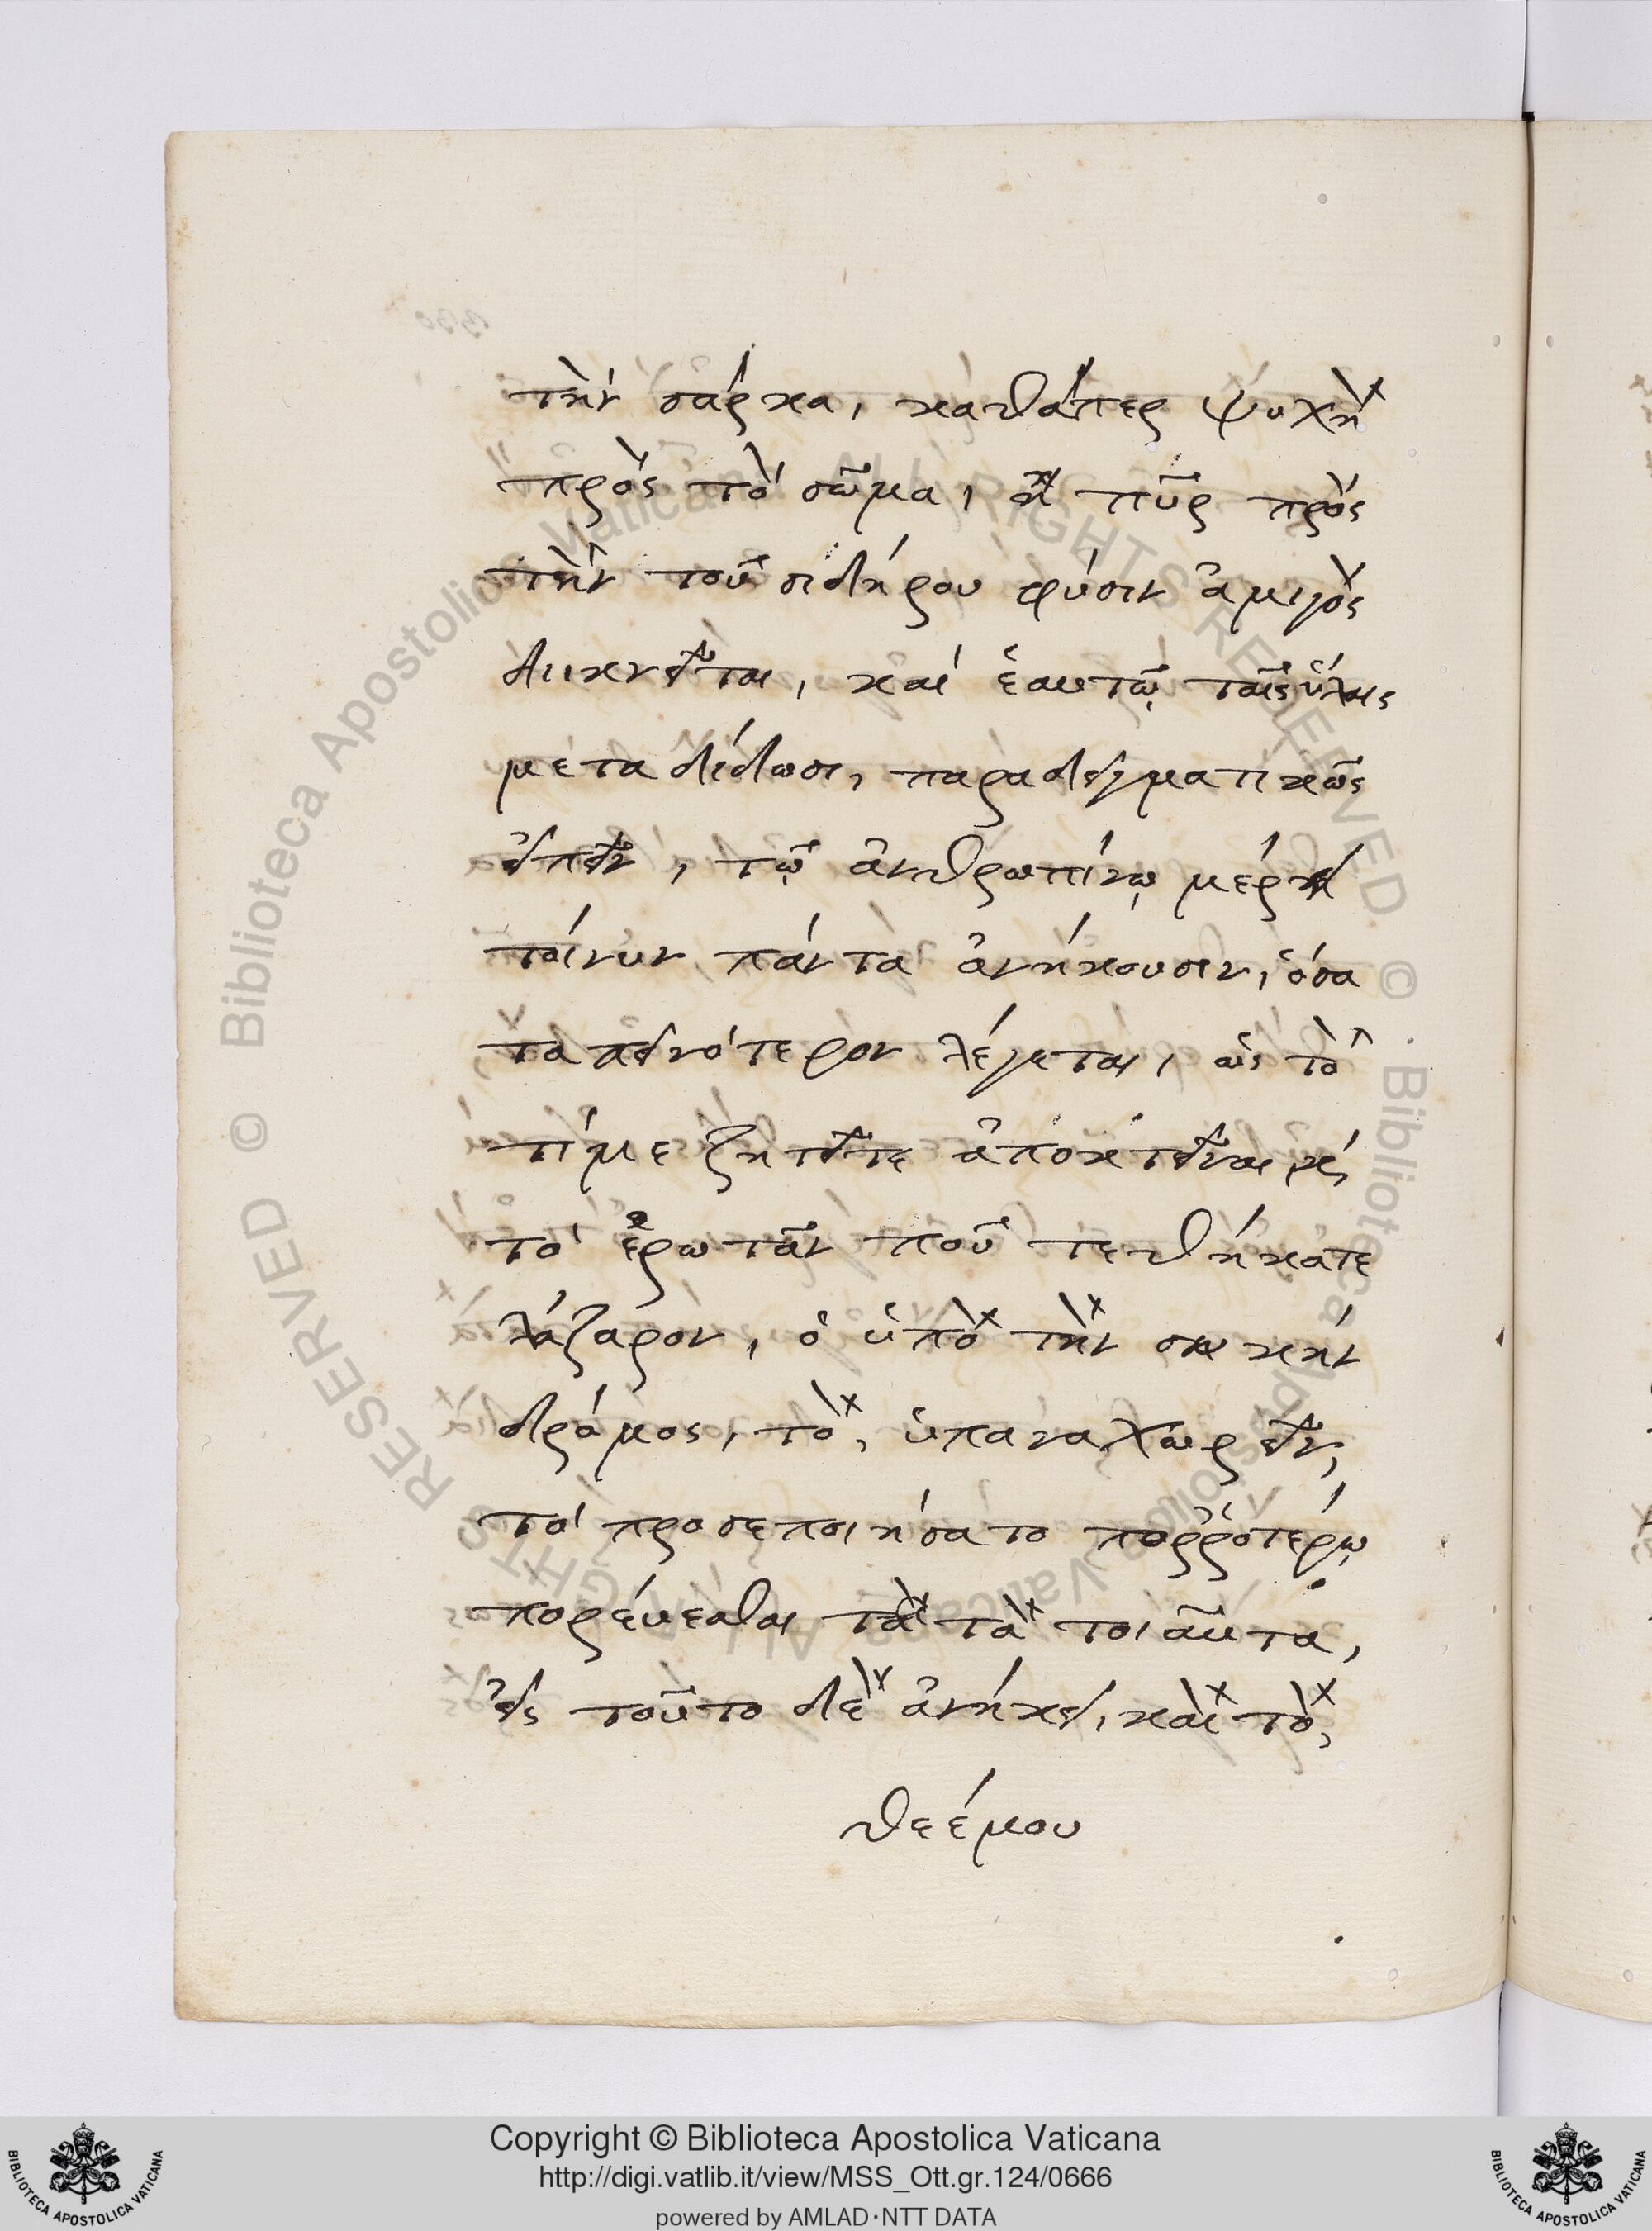 τὴν σάρκα, καθάπερ ψυχὴ
πρὸς τὸ σῶμα, ἢ πῦρ πρὸς
τὴν τοῦ σιδήρου φύσιν ἀμιγὸς
διικνεῖται, καί ἑαυτῷ ταῖς ὕλαις
μεταδίδωσι, παραδειγματικῶς
εἰπεῖν, τῷ ἀνθρωπίνῳ μέρει
τοίνυν πάντα ἀνήκουσιν, ὅσα
ταπεινότερον λέγεται, ὡς τὸ
τί με ζητεῖτε ἀποκτεῖναι καί
τό ἐρωτᾶν ποῦ τεθήκατε
λάζαρον, ὁ ὑπὸ τὴν συκήν
δρόμος, τὸ, ὑπαναχωρεῖν,
τό προσεποιήσατο πορῤῥοτέρω
πορεύεσθαι τὰ τὰ τοιαῦτα,
εἰς τοῦτο δὲ ἀνήκει, καὶ τὸ,
θεέ μου
Copyright © Biblioteca Apostolica Vaticana
http://digi.vatlib.it/view/MSS_Ott.gr.124/0666
powered by AMLAD·NTT DATA
BIBLIOTECA APOSTOLICA VATICANA
BIBLIOTECA APOSTOLICA VATICANA
© Biblioteca Apostolica Vaticana ALL RIGHTS RESERVED © Biblioteca Apostolica Vaticana ALL RIGHTS RESERVED